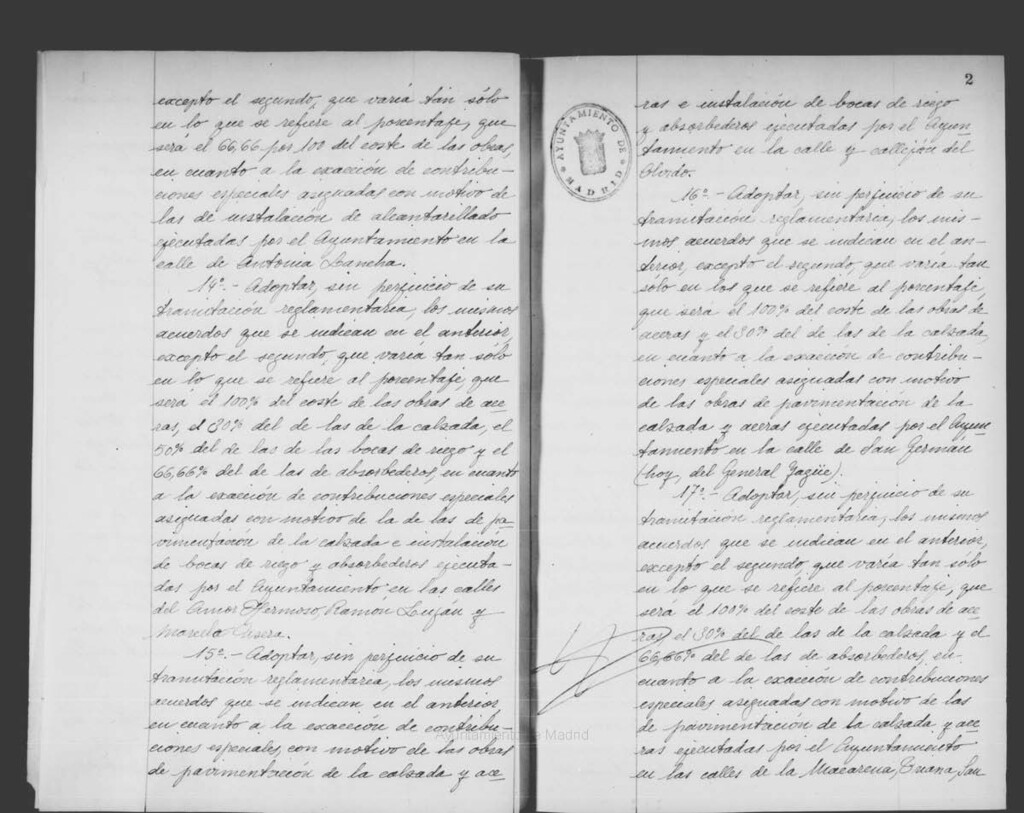 excepto el segundo, que varía tan sólo
en lo que se refiere al porcentaje, que
será el 66,66 por 100 del coste de las obras,
en cuanto a la exacción de contribu-
ciones especiales asignadas con motivo de
las de instalación de alcantarillado
ejecutadas por el Ayuntamiento en la
calle de Antonia Lancha.
14º.- Adoptar, sin perjuicio de su
tramitación reglamentaria, los mismos
acuerdos que se indican en el anterior,
excepto el segundo, que varía tan sólo
en lo que se refiere al porcentaje, que
será el 100% del coste de las obras de ace
ras, el 30% del de las de la calzada, el
50% del de las de las bocas de riego y el
66,66% del de las de absorbederos, en cuanto
a la exacción de contribuciones especiales
asignadas con motivo de la de las de pa
vimentación de la calzada e instalación
de bocas de riego y absorbederos ejecuta-
das por el Ayuntamiento en las calles
del Amor Hermoso, Ramón Luján y
Marcelo Usera.
15º.- Adoptar, sin perjuicio de su
tramitación reglamentaria, los mismos
acuerdos que se indican en el anterior
en cuanto a la exacción de contribu-
ciones especiales, con motivo de las obras
de pavimentación de la calzada y ace
Ayuntamiento de Madrid
2
AYUNTAMIENTO DE MADRID
ras e instalación de bocas de riego
y absorbederos ejecutadas por el Ayun
tamiento en la calle y callejón del
Olvido.
16º.- Adoptar, sin perjuicio de su
tramitación reglamentaria, los mis-
mos acuerdos que se indican en el an-
terior, excepto el segundo, que varía tan
sólo en los que se refiere al porcentaje,
que será el 100% del coste de las obras de
aceras y el 30% del de las de la calzada,
en cuanto a la exacción de contribu-
ciones especiales asignadas con motivo
de las obras de pavimentación de la
calzada y aceras ejecutadas por el Ayun
tamiento en la calle de San Germán
(hoy, del General Yagüe).
17º.- Adoptar, sin perjuicio de su
tramitación reglamentaria, los mismos
acuerdos que se indican en el anterior,
excepto el segundo, que varía tan sólo
en lo que se refiere al porcentaje, que
será el 100% del coste de las obras de ace
ras, el 30% del de las de la calzada y el
66,66% del de las de absorbederos, en
cuanto a la exacción de contribuciones
especiales asignadas con motivo de las
de pavimentación de la calzada y ace
ras ejecutadas por el Ayuntamiento
en las calles de la Macarena, Triana, San